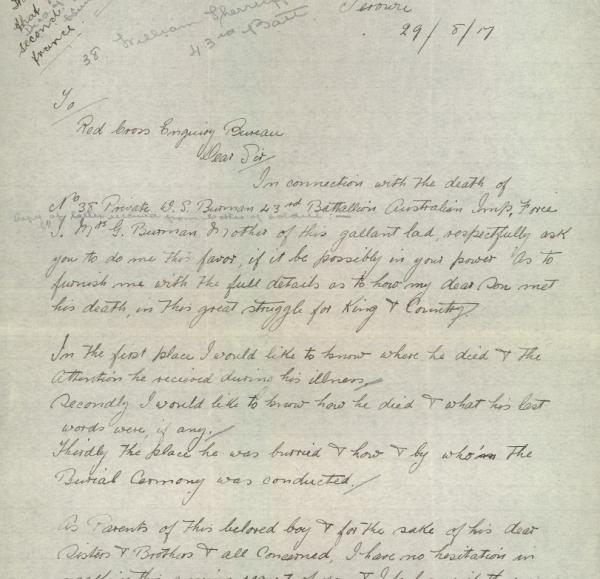 that
second
france
38 William Sherriff
43rd Batt
Terowie
29/8/17
To
Red Cross Enquiry Bureau
Dear Sir
In connection with the death of
No 38 Private W. S. Burman 43rd Battallion Australian Imp, Force
I. Mrs G. Burman Mother of this gallant lad, respectfully ask
you to do me this favor, if it be possibly in your power as to
furnish me with the full details as to how my dear son met
his death, in this great struggle for King & Country.
In the first place I would like to know where he died & the
Attention he received during his illness
Secondly I would like to know how he died & what his last
words were, if any.
Thirdly the place he was burried & how & by who'm the
Burial Cermony was conducted.
As Parents of this beloved boy & for the sake of his dear
Sisters & Brothers & all Concerned, I have no hesitation in